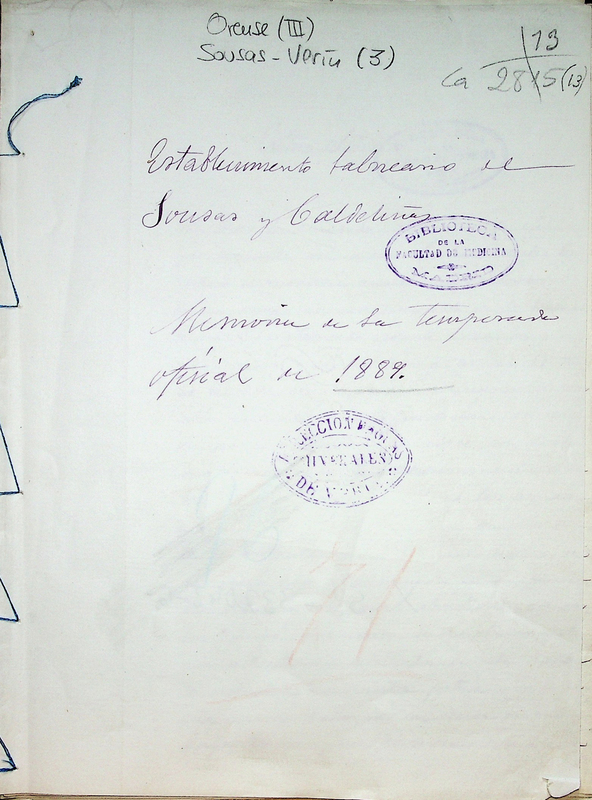 Orense (III)
Sousas-Verín (3)
13
Ca 2815 (13)
Establecimiento balneario de
Sousas y Caldeliñas
BIBLIOTECA
DE LA
FACULTAD DE MEDICINA
MADRID
Memoria de la temporada
oficial de 1889.
DE
71